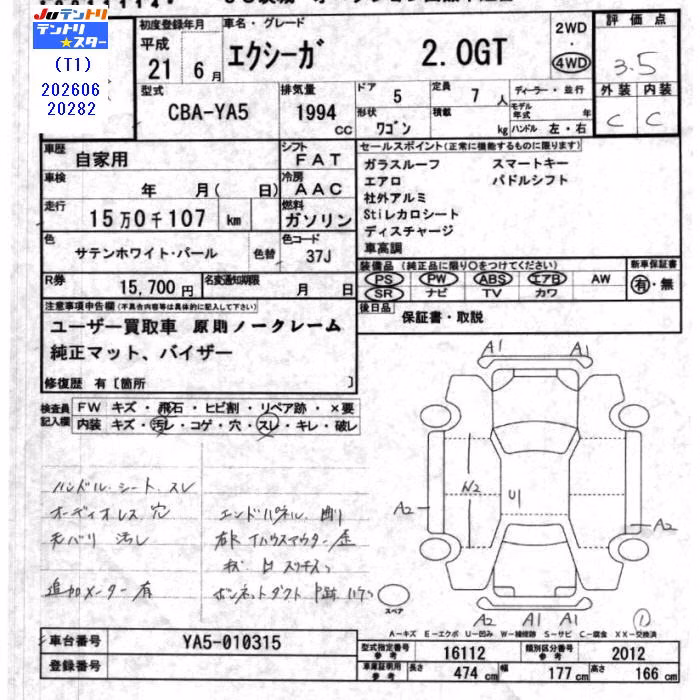 Juテントリ
テントリ★スター
(T1)
202606
20282
初度登録年月 車名・グレード 2WD・4WD 評価点
平成 21 6月 エクシーガ 2.0GT 3.5
型式 CBA-YA5 排気量 1994 cc
ドア 5 定員 7人 ディーラー・並行
形状 ワゴン 積載 kg モデル年式 年 ハンドル 左・右
外装 C 内装 C
車歴 自家用 シフト FAT
車検 年 月( 日) 冷房 AAC
走行 15万0千107 km 燃料 ガソリン
色 サテンホワイト・パール 色替 色コード 37J
R券 15,700円 名変通知期限 月 日
セールスポイント(正常に機能するものに限ります)
ガラスルーフ スマートキー
エアロ パドルシフト
社外アルミ
Stiレカロシート
ディスチャージ
車高調
装備品(純正品に限り○をつけてください) 新車保証書
PS PW ABS エアB AW 有・無
SR ナビ TV カワ
後日品 保証書・取説
注意事項申告欄(不具合内容等は具体的に記入して下さい)
ユーザー買取車 原則ノークレーム
純正マット、バイザー
修復歴 有[箇所 ]
検査員記入欄 FW キズ・飛石・ヒビ割・リペア跡・×要
内装 キズ・汚レ・コゲ・穴・スレ・キレ・破レ
ハンドル・シート スレ
オーディオレス 穴
天バリ 汚レ
追加メーター 有
エンドパネル
ボンネットダクト
A1 A1
A2 W2 U1 A2
A2 A1 A1
スペア
①
A-キズ E-エクボ U-凹み W-補修跡 S-サビ C-腐食 XX-交換済
車台番号 YA5-010315
登録番号
型式指定番号 参考 16112 類別区分番号 参考 2012
車庫証明用 参考 長さ 474 cm 幅 177 cm 高さ 166 cm